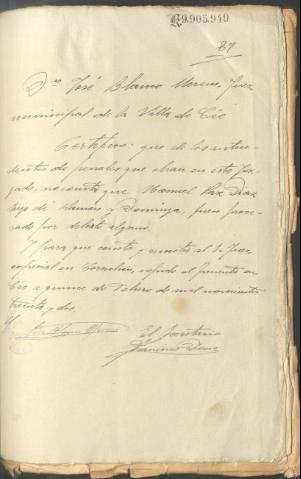 K9.905.949
87
Dn José Blanco Moreno, Juez
municipal de la Villa de Cée
Certifico: que de los antece-
dentes de penales que obran en este Juz-
gado, no consta que Manuel Paz Díaz
hijo de Ramón y Dominga, fuera proce-
sado por delito alguno.
Y para que conste y remita al S. Juez
especial en Corcubión, expido el presente en
Cée a quince de Febrero de mil novecientos
treinta y dos.
El Secretario